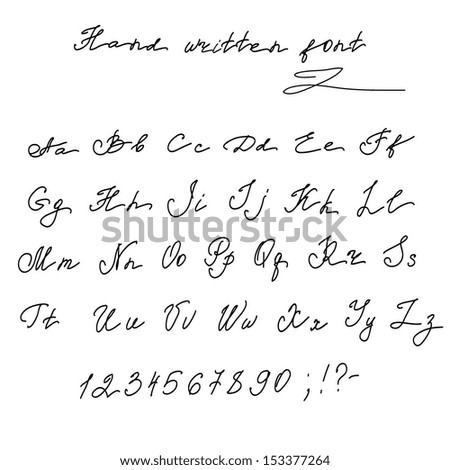 Hand written font
Aa Bb Cc Dd Ee Ff
Gg Hh Ii Jj Kk Ll
Mm Nn Oo Pp Qq Rr Ss
Tt Uu Vv Ww Xx Yy Zz
1234567890 ;!?-
shutterstock
www.shutterstock.com · 153377264